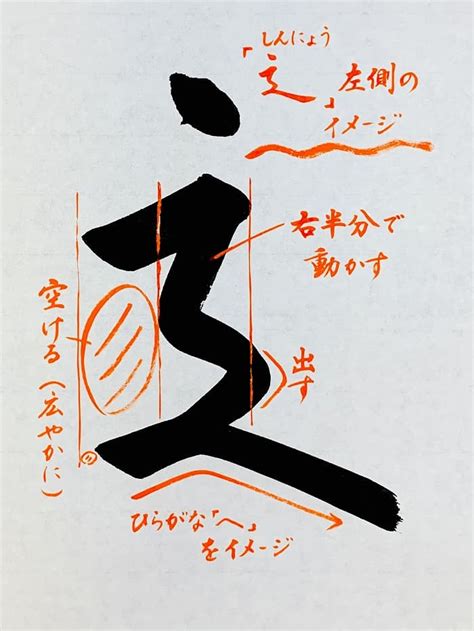 しんにょう
「辶」左側の
イメージ
右半分で
動かす
空ける(広やかに)
出す
ひらがな「へ」
をイメージ